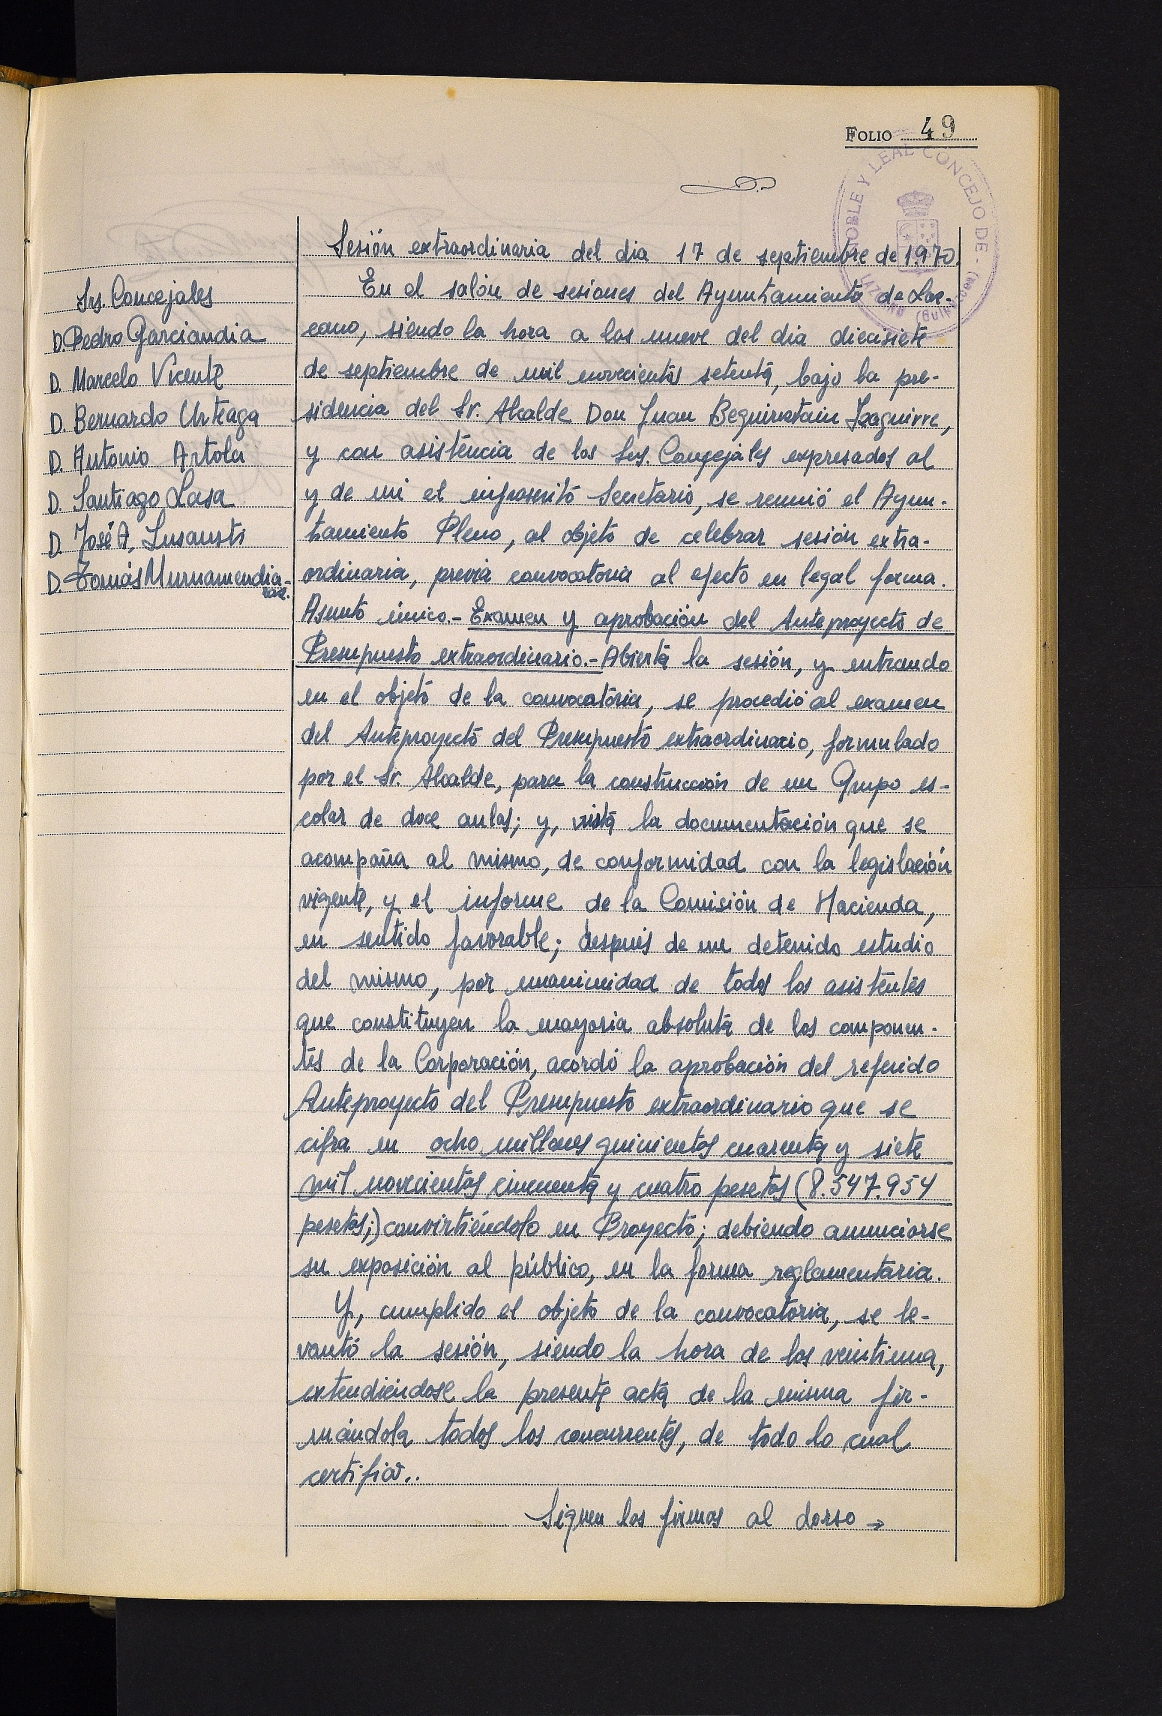 FOLIO 49
NOBLE Y LEAL CONCEJO DE - LAZCANO (Guipúzcoa)
Sesión extraordinaria del dia 17 de septiembre de 1970.
Srs. Concejales
D. Pedro Garciandia
D. Marcelo Vicente
D. Bernardo Urteaga
D. Antonio Artola
D. Santiago Lasa
D. José A. Insausti
D. Tomás Murnamendia-
raz.
En el salón de sesiones del Ayuntamiento de Laz-
cano, siendo la hora a las nueve del dia diecisiete
de septiembre de mil novecientos setenta, bajo la pre-
sidencia del Sr. Alcalde Don Juan Beguiristain Izaguirre,
y con asistencia de los Srs. Concejales expresados al
y de mi el infrascrito Secretario, se reunió el Ayun-
tamiento Pleno, al objeto de celebrar sesión extra-
ordinaria, previa convocatoria al efecto en legal forma.
Asunto único.- Examen y aprobación del Anteproyecto de
Presupuesto extraordinario.- Abierta la sesión, y entrando
en el objeto de la convocatoria, se procedió al examen
del Anteproyecto del Presupuesto extraordinario, formulado
por el Sr. Alcalde, para la construcción de un Grupo es-
colar de doce aulas; y, vista la documentación que se
acompaña al mismo, de conformidad con la legislación
vigente, y el informe de la Comisión de Hacienda,
en sentido favorable; después de un detenido estudio
del mismo, por unanimidad de todos los asistentes
que constituyen la mayoria absoluta de los componen-
tes de la Corporación, acordó la aprobación del referido
Anteproyecto del Presupuesto extraordinario que se
cifra en ocho millones quinientos cuarenta y siete
mil novecientas cincuenta y cuatro pesetas (8.547.954
pesetas;) convirtiéndolo en Proyecto; debiendo anunciarse
su exposición al público, en la forma reglamentaria.
Y, cumplido el objeto de la convocatoria, se le-
vantó la sesión, siendo la hora de las veintiuna,
extendiéndose la presente acta de la misma fir-
mándola todos los concurrentes, de todo lo cual
certifico..
Siguen las firmas al dorso →